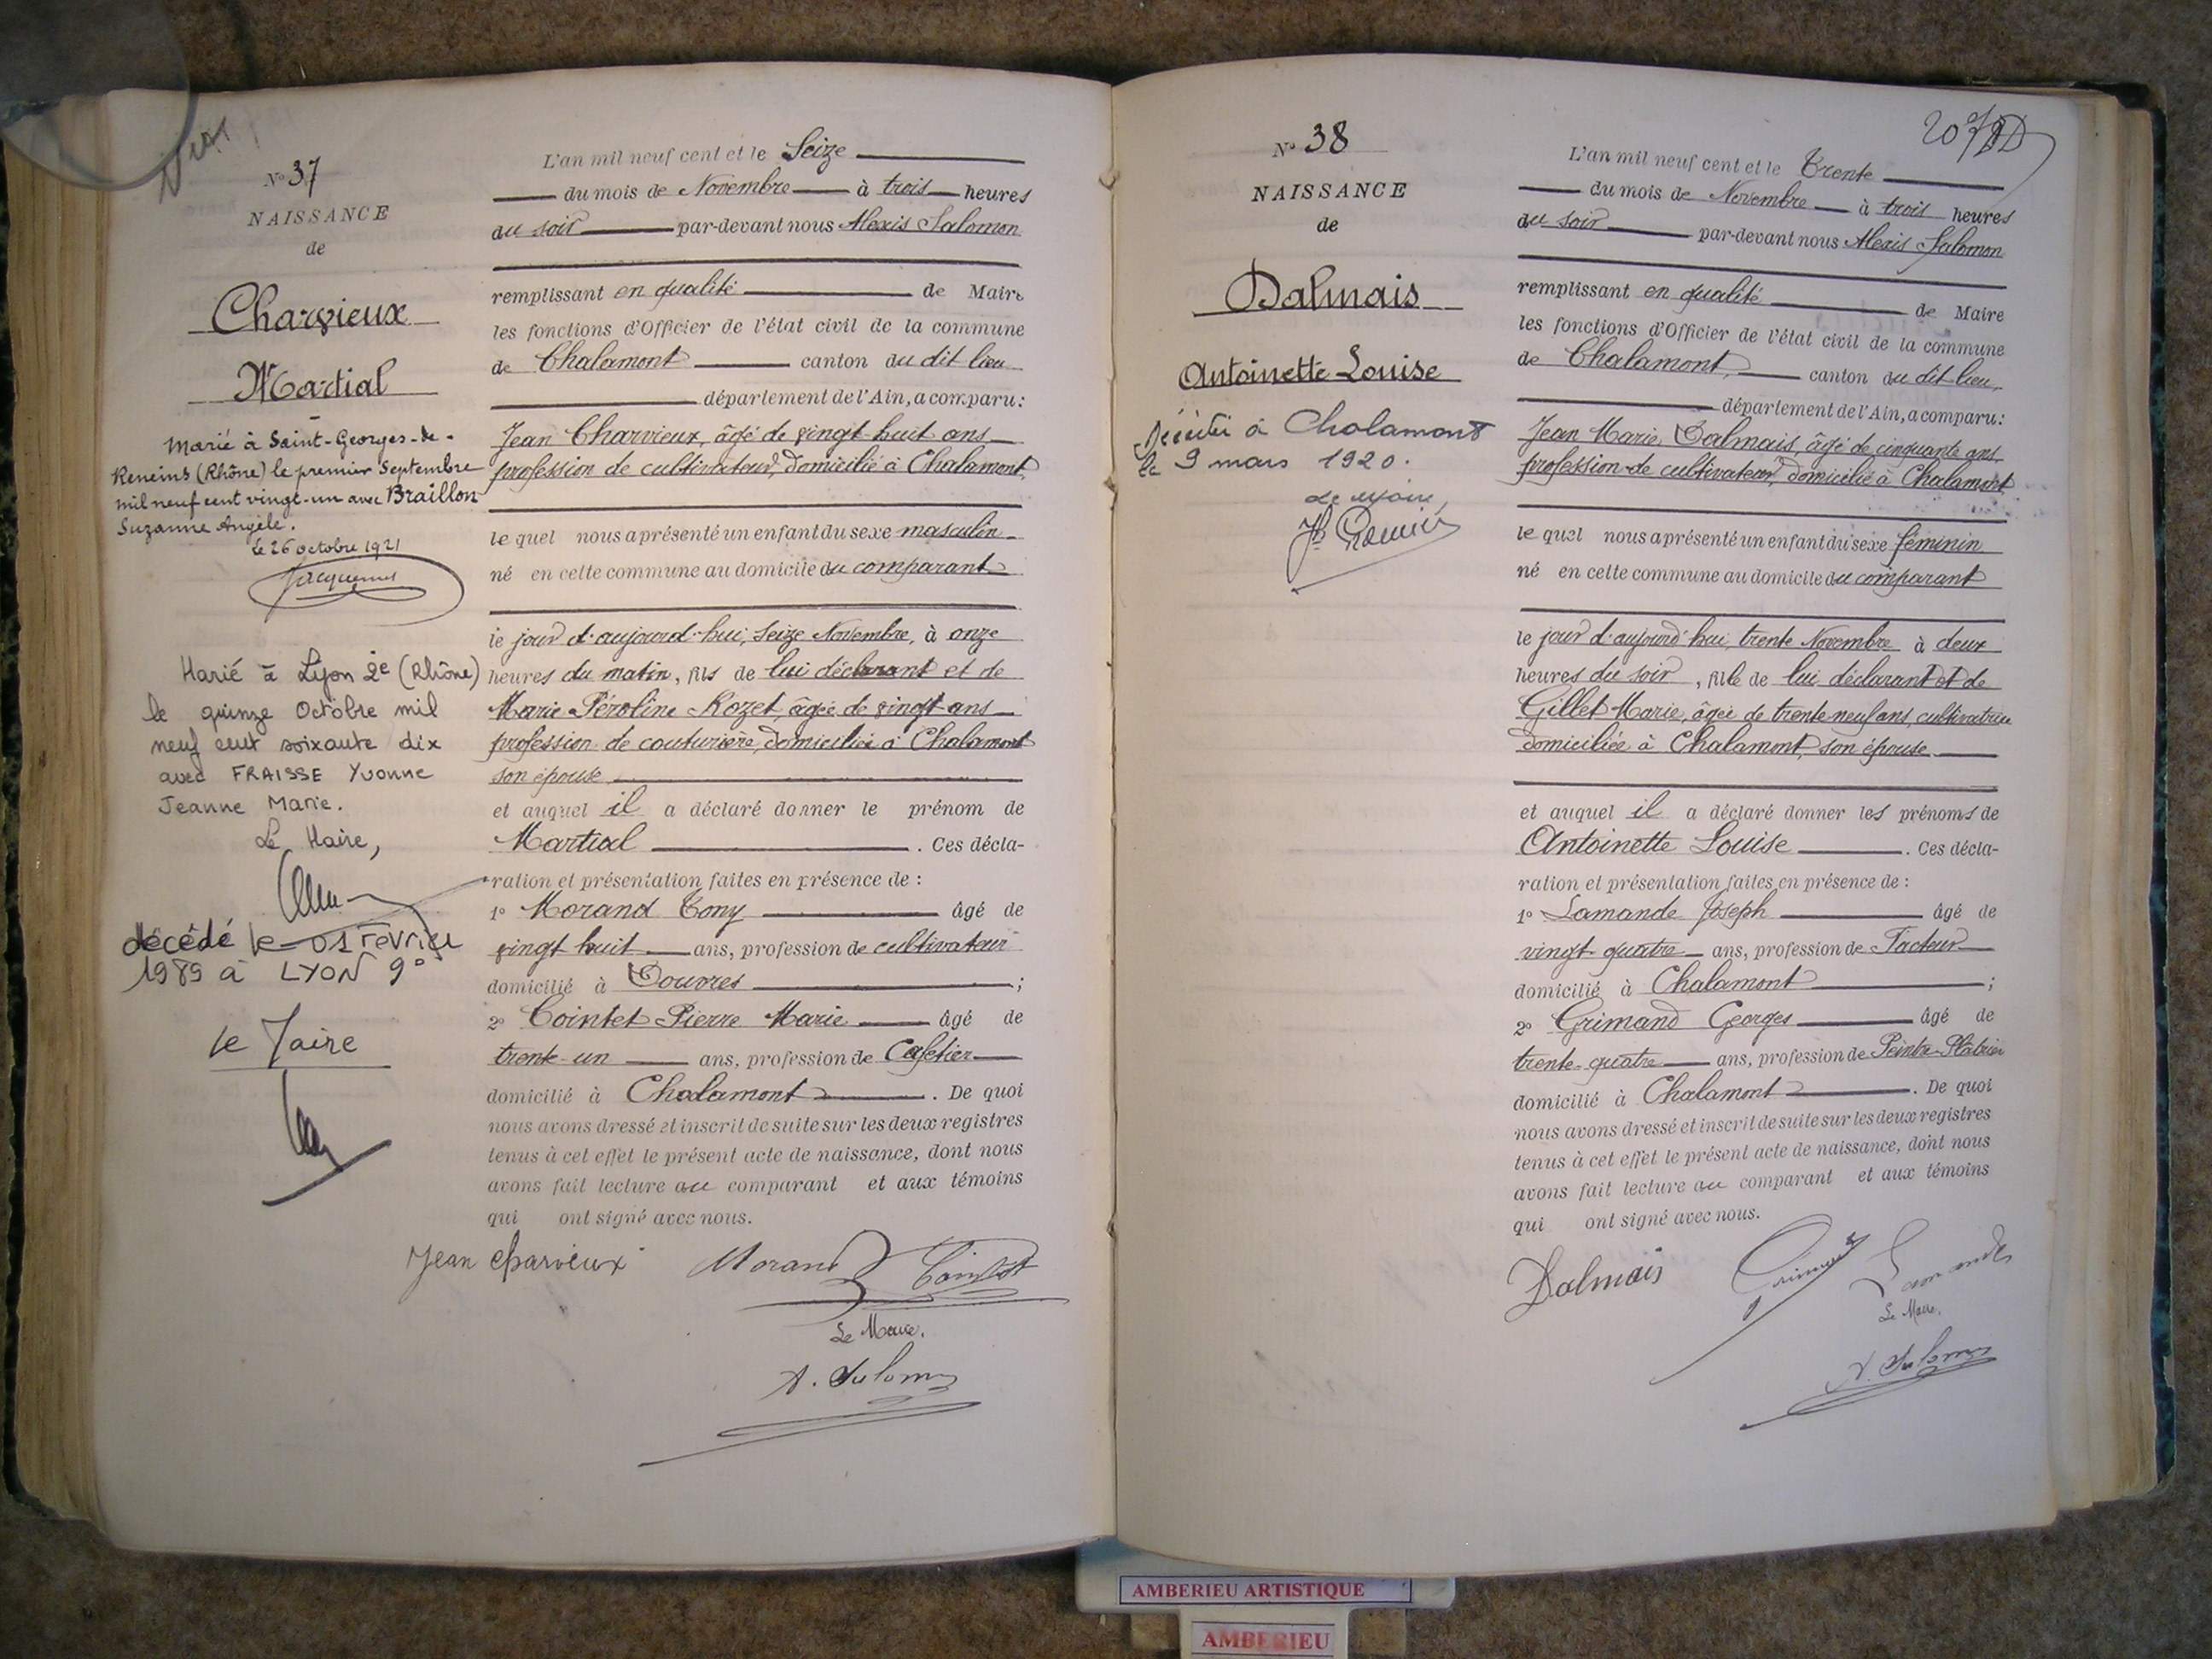 N° 37
NAISSANCE
de
Charvieux
Martial
Marié à Saint-Georges-de-
Reneins (Rhône) le premier Septembre
mil neuf cent vingt-un avec Braillon
Suzanne Angèle.
le 26 octobre 1921
Jacquemet
Marié à Lyon 2e (Rhône)
le quinze Octobre mil
neuf cent soixante dix
avec FRAISSE Yvonne
Jeanne Marie.
Le Maire,
décédé le 01 Fevrier
1989 à LYON 9°
le Maire
L'an mil neuf cent et le Seize
du mois de Novembre à trois heures
du soir par-devant nous Alexis Salomon
remplissant en qualité de Maire
les fonctions d'Officier de l'état civil de la commune
de Chalamont canton du dit lieu
département de l'Ain, a comparu:
Jean Charvieux, âgé de vingt-huit ans
profession de cultivateur, domicilié à Chalamont
le quel nous a présenté un enfant du sexe masculin
né en cette commune au domicile du comparant
le jour d'aujourd'hui, seize Novembre, à onze
heures du matin, fils de lui déclarant et de
Marie Péroline Rozet, âgée de vingt ans
profession de couturière, domiciliée à Chalamont
son épouse
et auquel il a déclaré donner le prénom de
Martial . Ces décla-
ration et présentation faites en présence de :
1° Morand Tony âgé de
vingt huit ans, profession de cultivateur
domicilié à Douvres ;
2° Cointet Pierre Marie âgé de
trente-un ans, profession de Cafetier
domicilié à Chalamont . De quoi
nous avons dressé et inscrit de suite sur les deux registres
tenus à cet effet le présent acte de naissance, dont nous
avons fait lecture au comparant et aux témoins
qui ont signé avec nous.
Jean Charvieux Morand Cointet
Le Maire.
A. Salomon
N° 38
NAISSANCE
de
Dalmais
Antoinette Louise
Décédée à Chalamont
le 9 mars 1920.
Le Maire,
L'an mil neuf cent et le Trente
du mois de Novembre à trois heures
du soir par-devant nous Alexis Salomon
remplissant en qualité de Maire
les fonctions d'Officier de l'état civil de la commune
de Chalamont, canton du dit lieu,
département de l'Ain, a comparu:
Jean Marie Dalmais, âgé de cinquante ans,
profession de cultivateur, domicilié à Chalamont
le quel nous a présenté un enfant du sexe féminin
né en cette commune au domicile du comparant
le jour d'aujourd'hui, trente Novembre à deux
heures du soir, fille de lui déclarant et de
Gillet Marie, âgée de trente-neuf ans, cultivatrice
domiciliée à Chalamont, son épouse
et auquel il a déclaré donner les prénoms de
Antoinette Louise . Ces décla-
ration et présentation faites en présence de :
1° Lamande Joseph âgé de
vingt-quatre ans, profession de Facteur
domicilié à Chalamont ;
2° Grimand Georges âgé de
trente-quatre ans, profession de Peintre-Plâtrier
domicilié à Chalamont . De quoi
nous avons dressé et inscrit de suite sur les deux registres
tenus à cet effet le présent acte de naissance, dont nous
avons fait lecture au comparant et aux témoins
qui ont signé avec nous.
Dalmais Grimand Lamande
Le Maire.
A. Salomon
AMBERIEU ARTISTIQUE
AMBERIEU